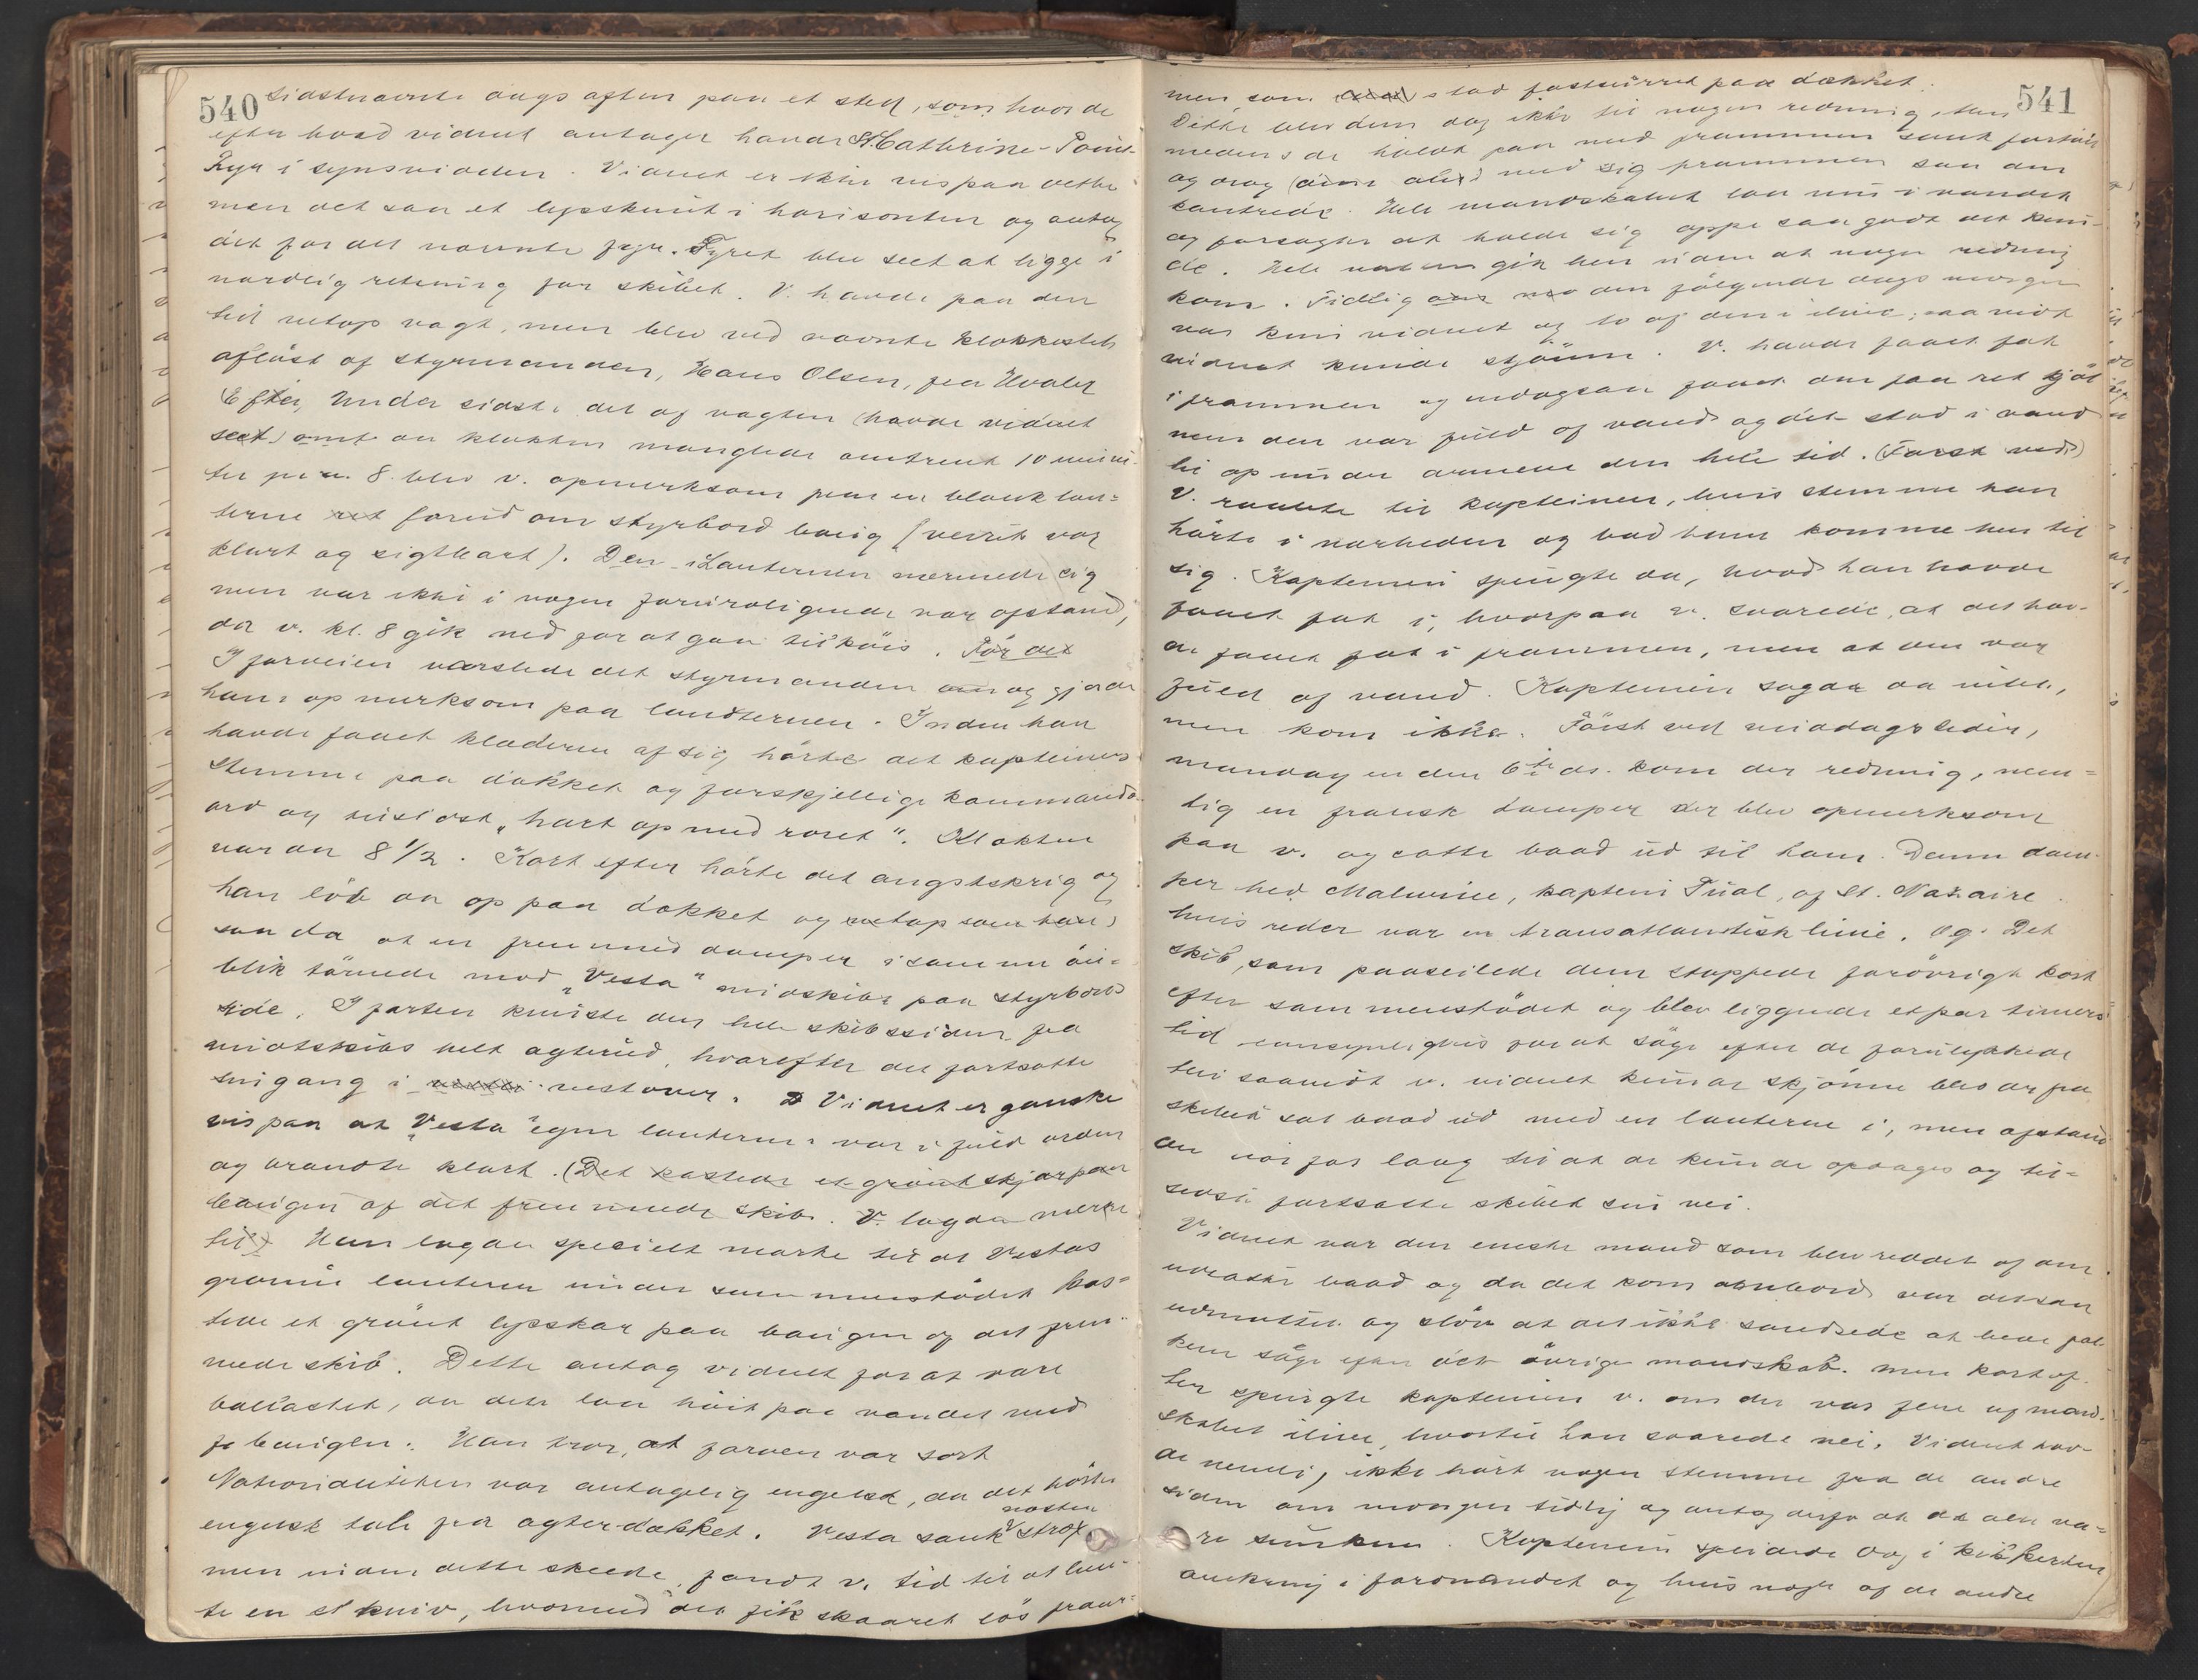 540
sidstnævnte dags aften paa et sted, som hvor de
efter hvad vidnet antager havde St. Cathrine-Point-
Fyr i synsvidden. Vidnet er ikke vis paa dette
men det saa et lysskint i horisonten og antog
det for det nævnte fyr. Fyret blev seet at ligge i
nordlig retning for skibet. V. havde paa den
tid netop vagt, men blev ved nævnte klokkeslet
afløst af styrmanden, Hans Olsen, fra Hvaler
Efter, Under sidste del af vagten (havde vidnet
seet) omt da klokken manglede omtrent 10 minu-
ter paa 8 blev v. opmerksom paa en blank lan-
terne ret forud om styrbord baug (veiret var
klart og sigtbart). Den Lanternen nærmede sig
men var ikke i nogen foruroligende nær afstand,
da v. kl. 8 gik ned for at gaa tilkøis. Før det
I forveien varslede det styrmanden om og gjorde
ham opmerksom paa landternen. Indem han
havde faaet klæderne af sig hørte det kapteinens
stemme paa dækket og forskjellige kommando-
ord og tilsidst „hart op med roret". Klokken
var da 8 1/2. Kort efter hørte det angstskrig og
han løb da op paa dækket og netop som han
saa da at en fremmed damper i samme øie-
blik tørnede mod „Vesta" midskibs paa styrbords
side. I farten knuste den hele skibssiden fra
midtskibs helt agterud, hvorefter den fortsatte
sin gang i vestover. Vidnet er ganske
vis paa at „Vesta" egne lanterner var i fuld orden
og brændte klart. (Det kastede et grønt skjær paa
baugen af det fremmede skib. V. lagde merke
til) Han lagde specielt merke til at Vestas
grønne lanterne under sammenstødet kas-
tede et grønt lysskær paa baugen af det frem-
mede skib. Dette antog vidnet for at være
ballastet, da det laa høit paa vandet med
fo baugen. Han tror, at farven var sort
Nationaliteten var antagelig engelsk, da det hørte
engelsk tale fra agterdækket. Vesta sank næsten strax
men inden dette skeede, fandt v. tid til at hen-
te en sl kniv, hvormed det fik skaaret løs pram-
541
men, som stod fastsurret paa dækket.
Dette blev dem dog ikke til nogen redning, ten
medens de holdt paa med prammen sank fartøiet
og drog (dem alle) med sig prammen saa den
kantrede. Hele mandskabet laa nu i vandet
og forsøgte at holde sig oppe saa godt det kun-
de. Hele natten gik hen uden at nogen redning
kom. Tidlig den følgende dags morgen
var kun vidnet og to af dem i live, saavidt
vidnet kunde skjønne. V. havde faaet fat
i prammen og endogsaa faaet den paa ret kjøl
men den var fuld af vand og det stod i vand
til op under armene den hele tid. (Først ved)
V. raabte til kapteinen, hvis stemme han
hørte i nærheden og bad ham komme hen til
sig. Kapteinen spurgte da, hvad han havde
faaet fat i, hvorpaa v. svarede, at det hav-
de faaet fat i prammen, men at den var
fuld af vand. Kapteinen sagde da intet,
men kom ikke. Først ved middagsleden,
mandagen den 6te ds. kom der redning, nem-
lig en fransk damper der blev opmerksom
paa v. og satte baad ud til ham. Denne dam-
per hed Malwine, kaptein Tual, af St. Nazaire
hvis reder var en transatlantisk linie. Og. Det
skib, som paaseilede dem stoppede forøvrigt kort
efter sammenstødet og blev liggende et par timers
tid sansynligvis for at søge efter de forulykkede
thi saavidt v. vidnet kunde skjønne blev der fra
skibet sat baad ud med en lanterne i, men afstand
en var for lang til at de kunde opdages og til-
sidst fortsatte skibet sin vei.
Vidnet var den eneste mand som blev reddet af den
udsatte baad og da det kom ombord var det saa
udmattet og sløv at det ikke sandsede at bede fol-
kene søge efter det øvrige mandskab. men kort ef-
ter spurgte kapteinen v. om der var flere af mand-
skabet ilive, hvortil han svarede nei. Vidnet hav-
de nemlig ikke hørt nogen stemme fra de andre
siden om morgen tidlig og antog derfor at de alle va-
re sunkne. Kapteinen speidede dog i kikkerten
omkring i farvandet og hvis nogen af de andre